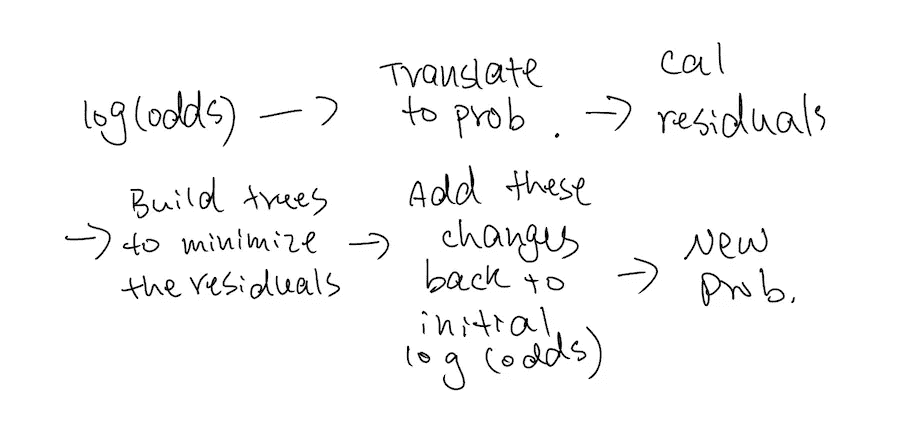 log(odds) → Translate to prob. → cal residuals
→ Build trees to minimize the residuals → Add these changes back to initial log(odds) → New prob.